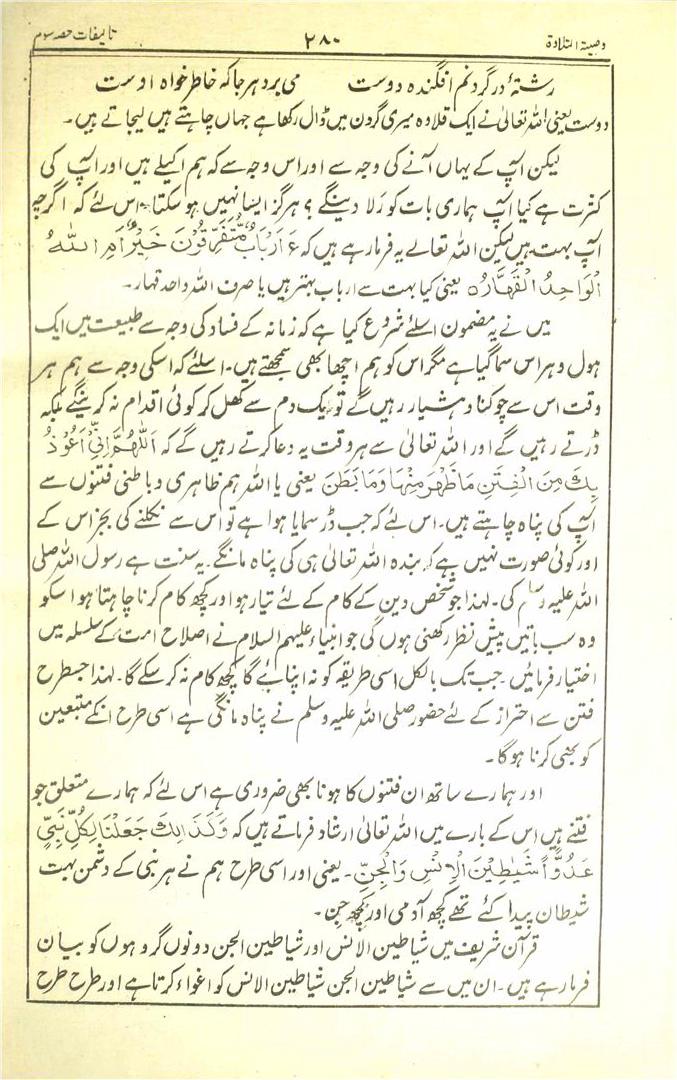 وصیۃ التلاوۃ ۲۸۰ تالیفات حصہ سوم
رشتۂ در گردنم افگندہ دوست می برد ہر جا کہ خاطر خواہ اوست
دوست یعنی اللہ تعالیٰ نے ایک قلادہ میری گردن میں ڈال رکھا ہے جہاں چاہتے ہیں لیجاتے ہیں۔
لیکن آپ کے یہاں آنے کی وجہ سے اور اس وجہ سے کہ ہم اکیلے ہیں اور آپ کی
کثرت ہے کیا آپ ہماری بات کو رَلا دینگے ؟ ہرگز ایسا نہیں ہو سکتا۔ اس لئے کہ اگرچہ
آپ بہت ہیں لیکن اللہ تعالےٰ یہ فرما رہے ہیں کہ ءَ اَرْبَابٌ مُّتَفَرِّقُوْنَ خَیْرٌ اَمِ اللّٰہُ
الْوَاحِدُ الْقَھَّارُہ یعنی کیا بہت سے ارباب بہتر ہیں یا صرف اللہ واحد قہار۔
میں نے یہ مضمون اسلئے شروع کیا ہے کہ زمانہ کے فساد کی وجہ سے طبیعت میں ایک
ہول و ہراس سما گیا ہے مگر اس کو ہم اچھا بھی سمجھتے ہیں۔ اسلئے کہ اسکی وجہ سے ہم ہر
وقت اس سے چوکنا و ہشیار رہیں گے تو یک دم سے کھل کر کوئی اقدام نہ کریں گے بلکہ
ڈرتے رہیں گے اور اللہ تعالیٰ سے ہر وقت یہ دعا کرتے رہیں گے کہ اَللّٰھُمَّ اِنِّیْ اَعُوْذُ
بِکَ مِنَ الْفِتَنِ مَا ظَھَرَ مِنْھَا وَمَا بَطَنَ یعنی یا اللہ ہم ظاہری و باطنی فتنوں سے
آپ کی پناہ چاہتے ہیں۔ اس لئے کہ جب ڈر سمایا ہوا ہے تو اس سے نکلنے کی بجز اس کے
اور کوئی صورت نہیں ہے کہ بندہ اللہ تعالیٰ ہی کی پناہ مانگے۔ یہ سنت ہے رسول اللہ صلی
اللہ علیہ وسلم کی۔ لہٰذا جو شخص دین کے کام کے لئے تیار ہو اور کچھ کام کرنا چاہتا ہو اسکو
وہ سب باتیں پیش نظر رکھنی ہوں گی جو انبیاء علیہم السلام نے اصلاح امت کے سلسلہ میں
اختیار فرمائیں۔ جب تک بالکل اسی طریقہ کو نہ اپنائے گا کچھ کام نہ کر سکے گا۔ لہٰذا جسطرح
فتن سے احتراز کے لئے حضور صلی اللہ علیہ وسلم نے پناہ مانگی ہے اسی طرح انکے متبعین
کو بھی کرنا ہوگا۔
اور ہمارے ساتھ ان فتنوں کا ہونا بھی ضروری ہے اس لئے کہ ہمارے متعلق جو
فتنے ہیں اس کے بارے میں اللہ تعالیٰ ارشاد فرماتے ہیں کہ وَکَذٰلِکَ جَعَلْنَا لِکُلِّ نَبِیٍّ
عَدُوًّا شَیٰطِیْنَ الْاِنْسِ وَالْجِنِّ۔ یعنی اور اسی طرح ہم نے ہر نبی کے دشمن بہت
شیطان پیدا کئے تھے کچھ آدمی اور کچھ جن۔
قرآن شریف میں شیاطین الانس اور شیاطین الجن دونوں گروہوں کو بیان
فرما رہے ہیں۔ ان میں سے شیاطین الجن شیاطین الانس کو اغواء کرتا ہے اور طرح طرح